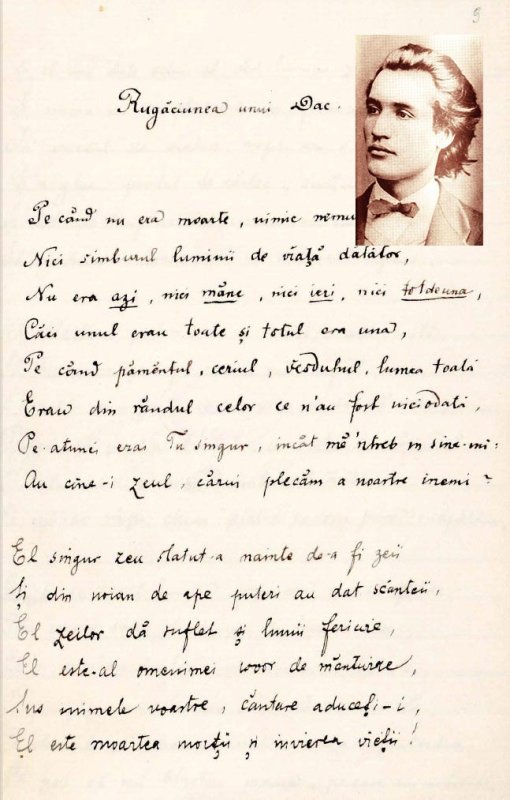 9
Rugăciunea unui Dac.
Pe când nu era moarte, nimic nemu
Nici sîmburul luminii de viață dătător,
Nu era azi, nici mâne, nici ieri, nici totdeuna,
Căci unul erau toate și totul era una,
Pe când pămêntul, ceriul, vĕsduhul, lumea toată
Erau din rândul celor ce n'au fost niciodată,
Pe-atunci erai Tu singur, încât mĕ'ntreb în sine-mi:
Au cine-i zeul, cărui plecăm a noastre inemi?
El singur zeu stătut-a nainte de-a fi zeii
Și din noian de ape puteri au dat scânteii,
El zeilor dă suflet și lumii fericire,
El este-al omenimei isvor de mântuire,
Sus inimele voastre, cântare aduceți-i,
El este moartea morții și învierea vieții!